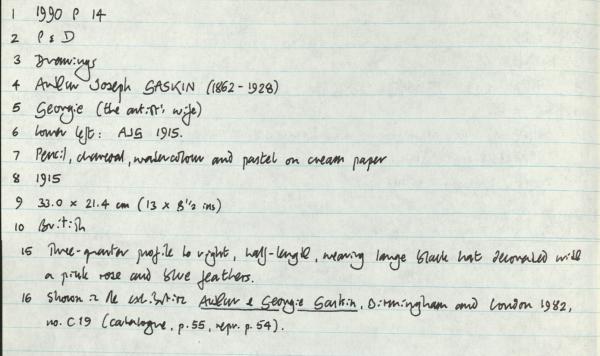 1 1990 P 14
2 P & D
3 Drawings
4 Arthur Joseph GASKIN (1862-1928)
5 Georgie (the artist's wife)
6 Lower left: AJG 1915.
7 Pencil, charcoal, watercolour and pastel on cream paper
8 1915
9 33.0 x 21.4 cm (13 x 8 1/2 ins)
10 British
15 Three-quarter profile to right, half-length, wearing large black hat decorated with
a pink rose and blue feathers.
16 Shown in the exhibition Arthur & Georgie Gaskin, Birmingham and London 1982,
no. C19 (catalogue, p.55, repr. p.54).